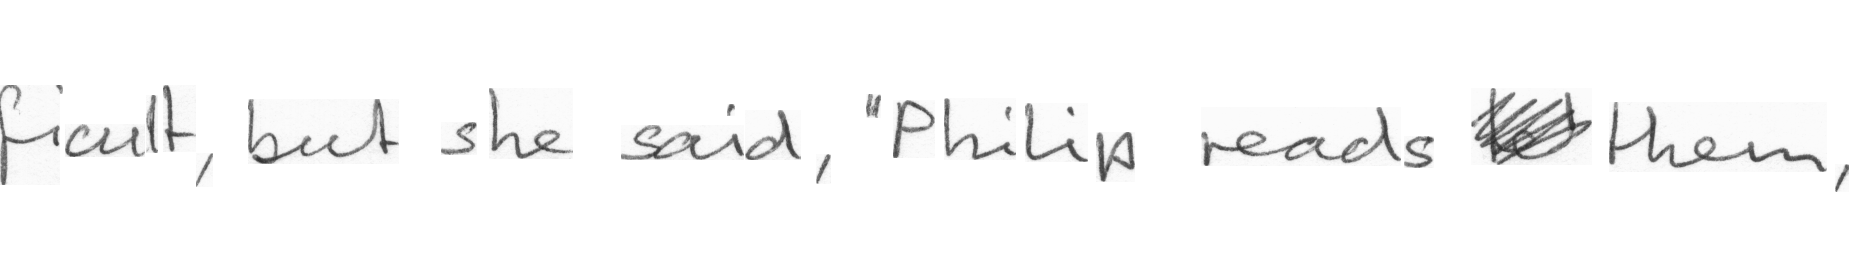 ficult, but she said, "Philip reads them,